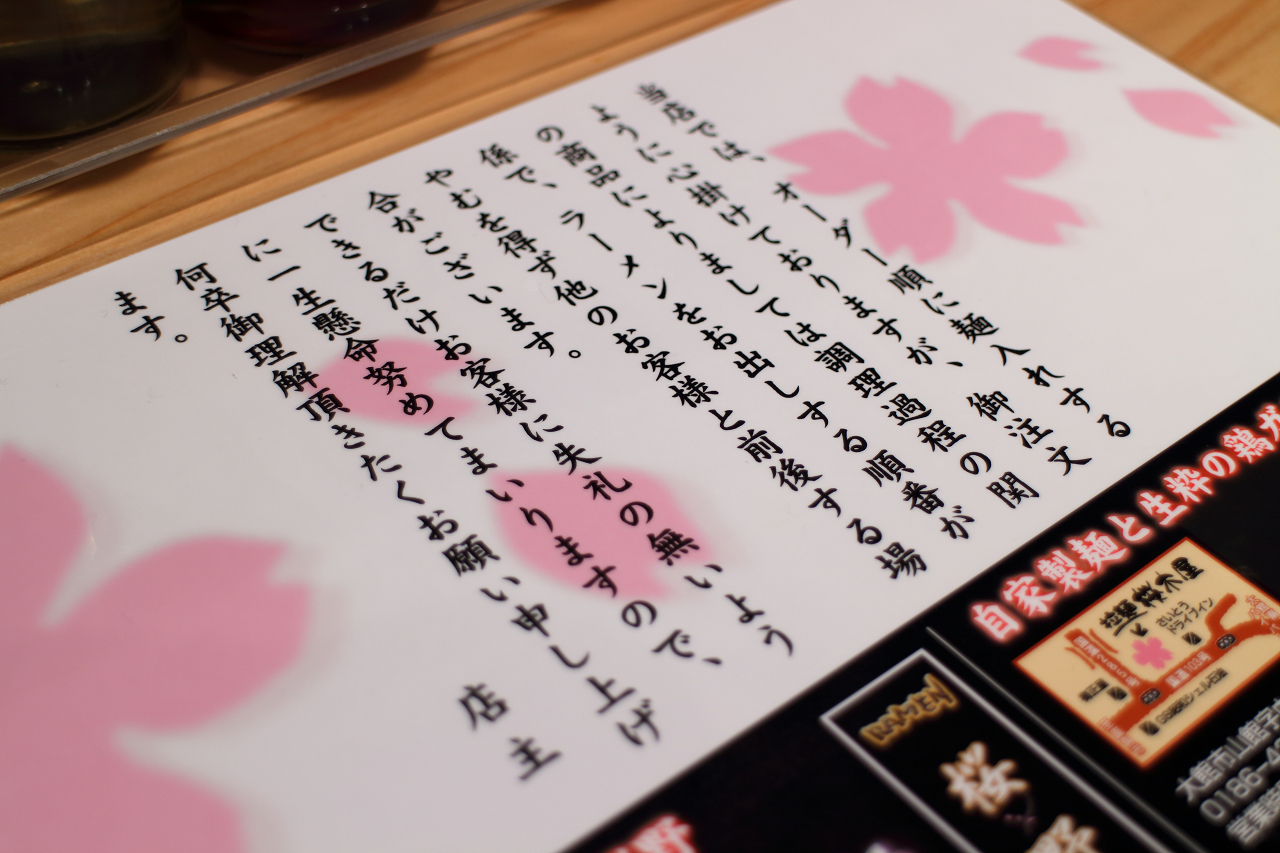 当店では、オーダー順に麺入れする
ように心掛けておりますが、御注文
の商品によりましては調理過程の関
係で、ラーメンをお出しする順番が
やむを得ず他のお客様と前後する場
合がございます。
できるだけお客様に失礼の無いよう
に一生懸命努めてまいりますので、
何卒御理解頂きたくお願い申し上げ
ます。
店主
自家製麺と生粋の鶏ガ
拉麺 桜木屋
さいとう
ドライブイン
国道103号
RAMEN
桜
野
野
大館市山館字
0186-4
営業時